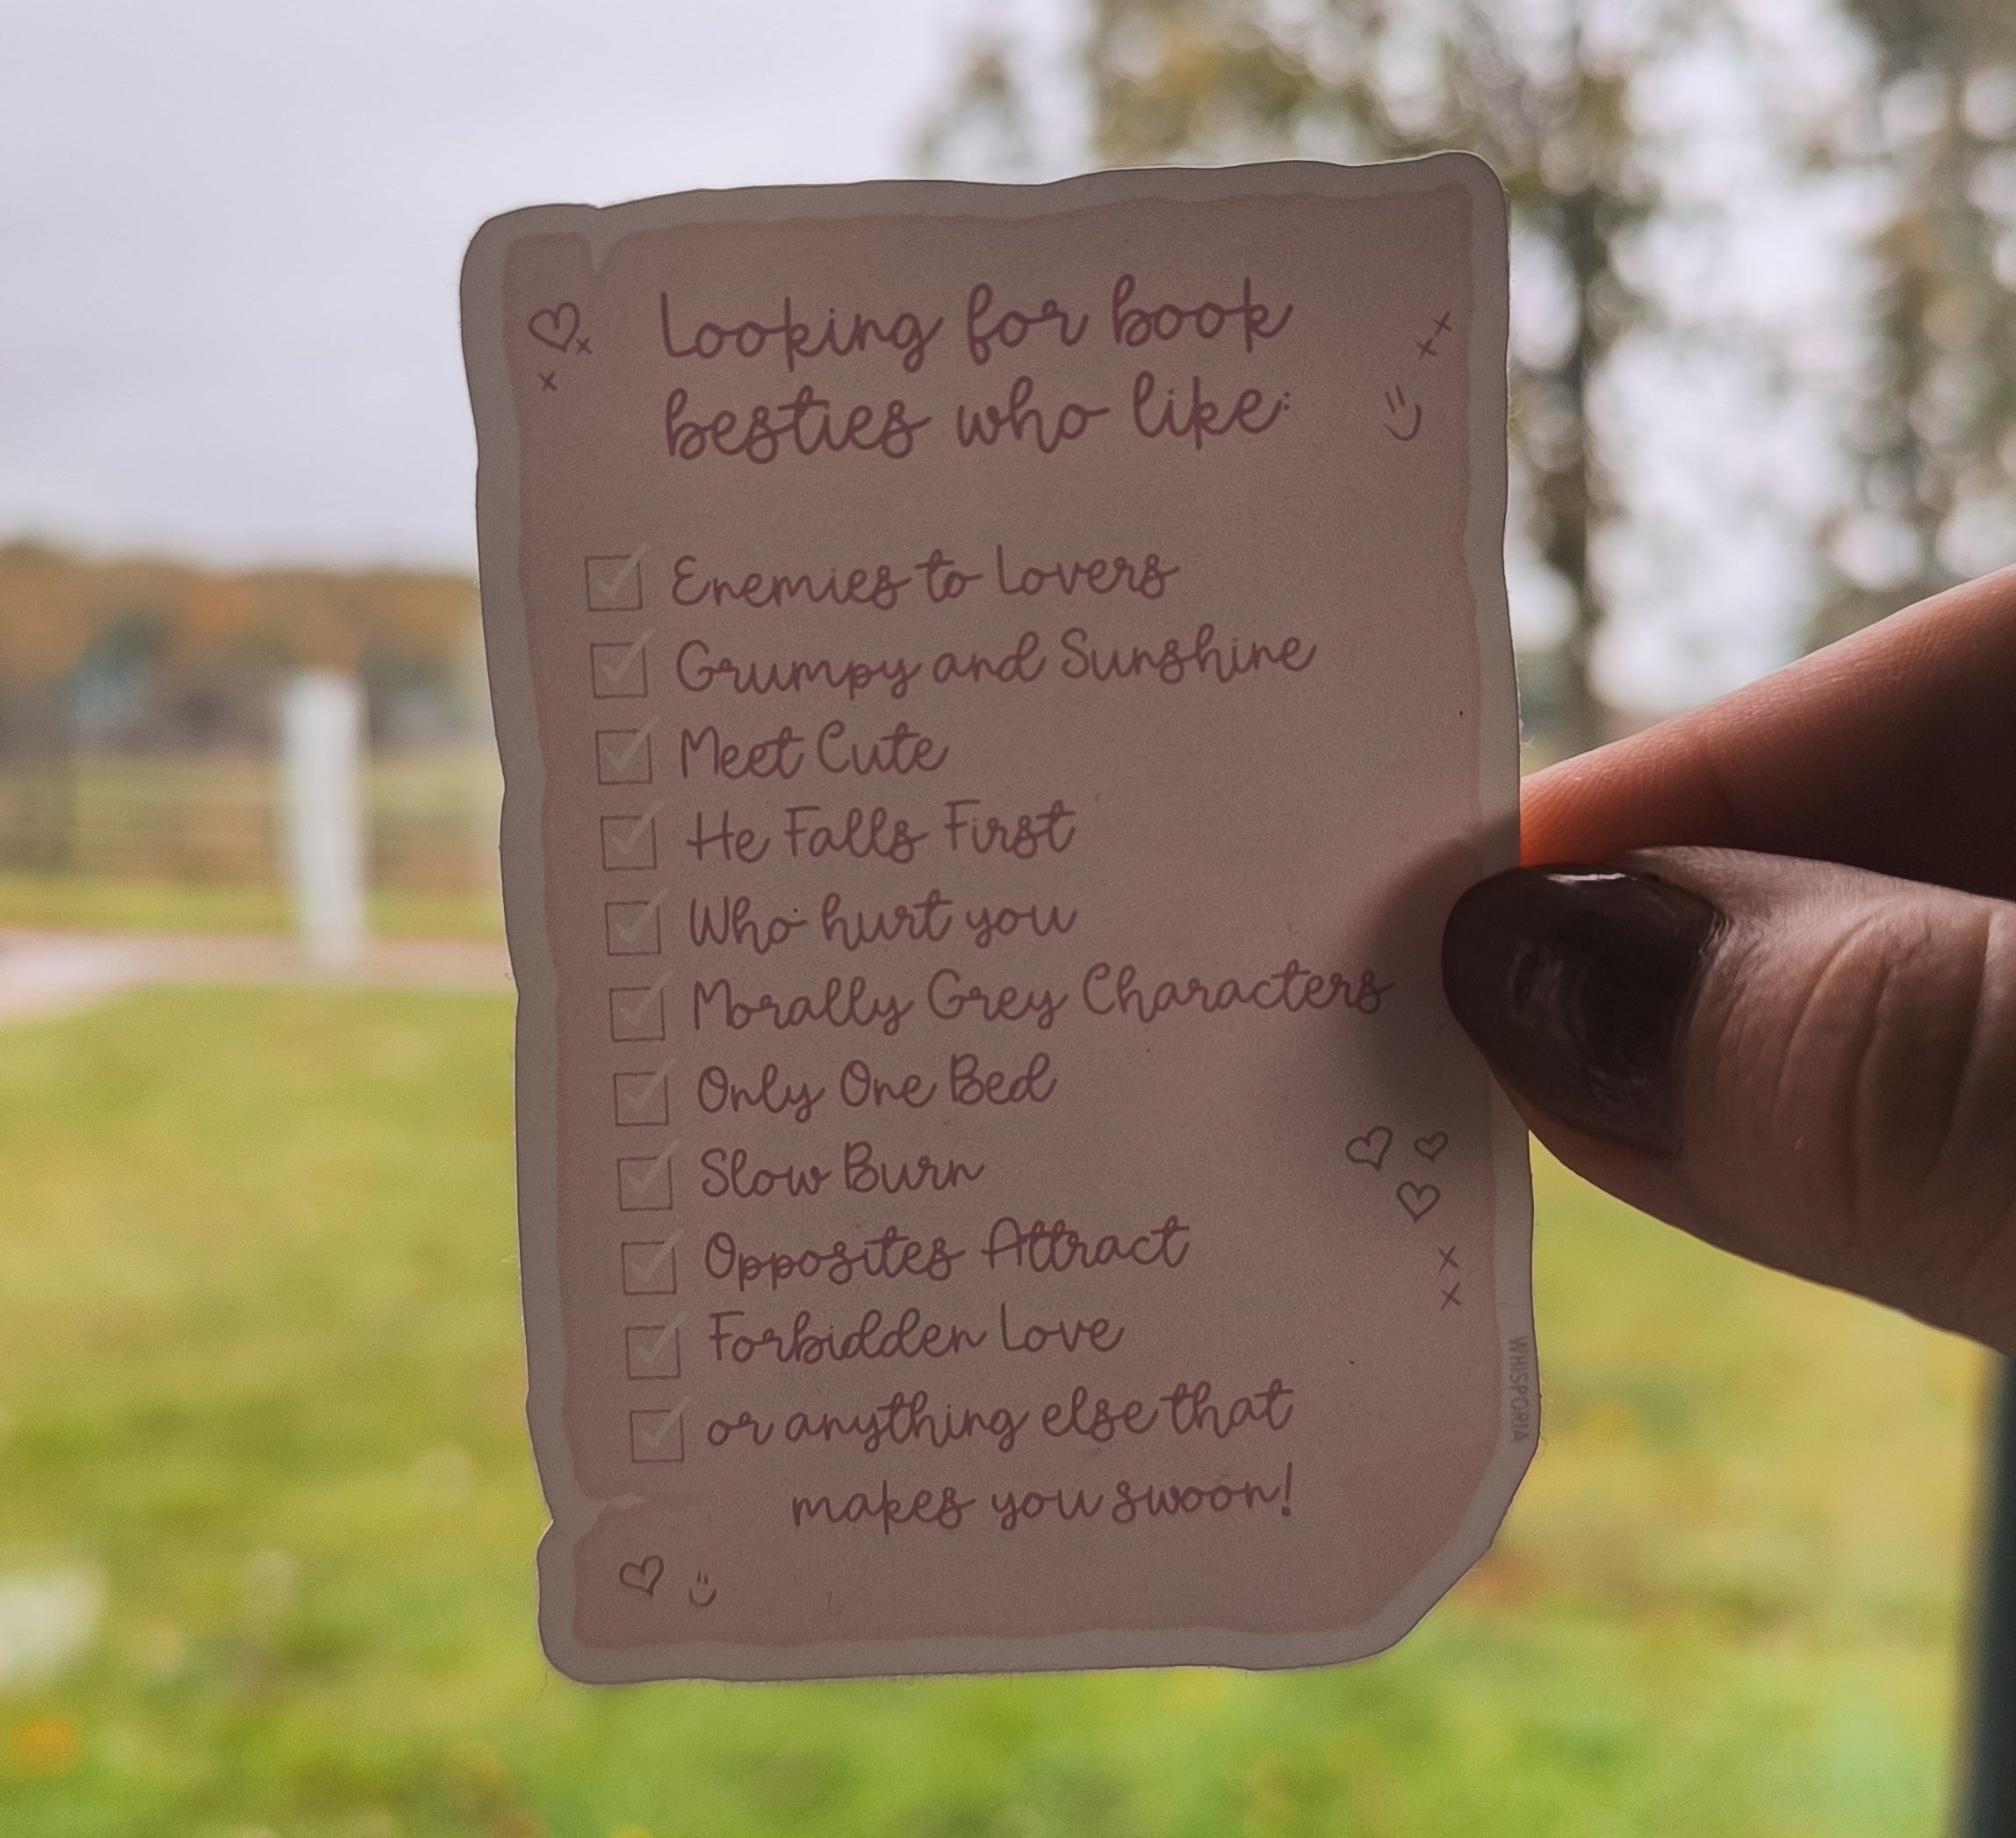 Looking for book
besties who like:
Enemies to Lovers
Grumpy and Sunshine
Meet Cute
He Falls First
Who hurt you
Morally Grey Characters
Only One Bed
Slow Burn
Opposites Attract
Forbidden Love
or anything else that
makes you swoon!
WHISPORIA